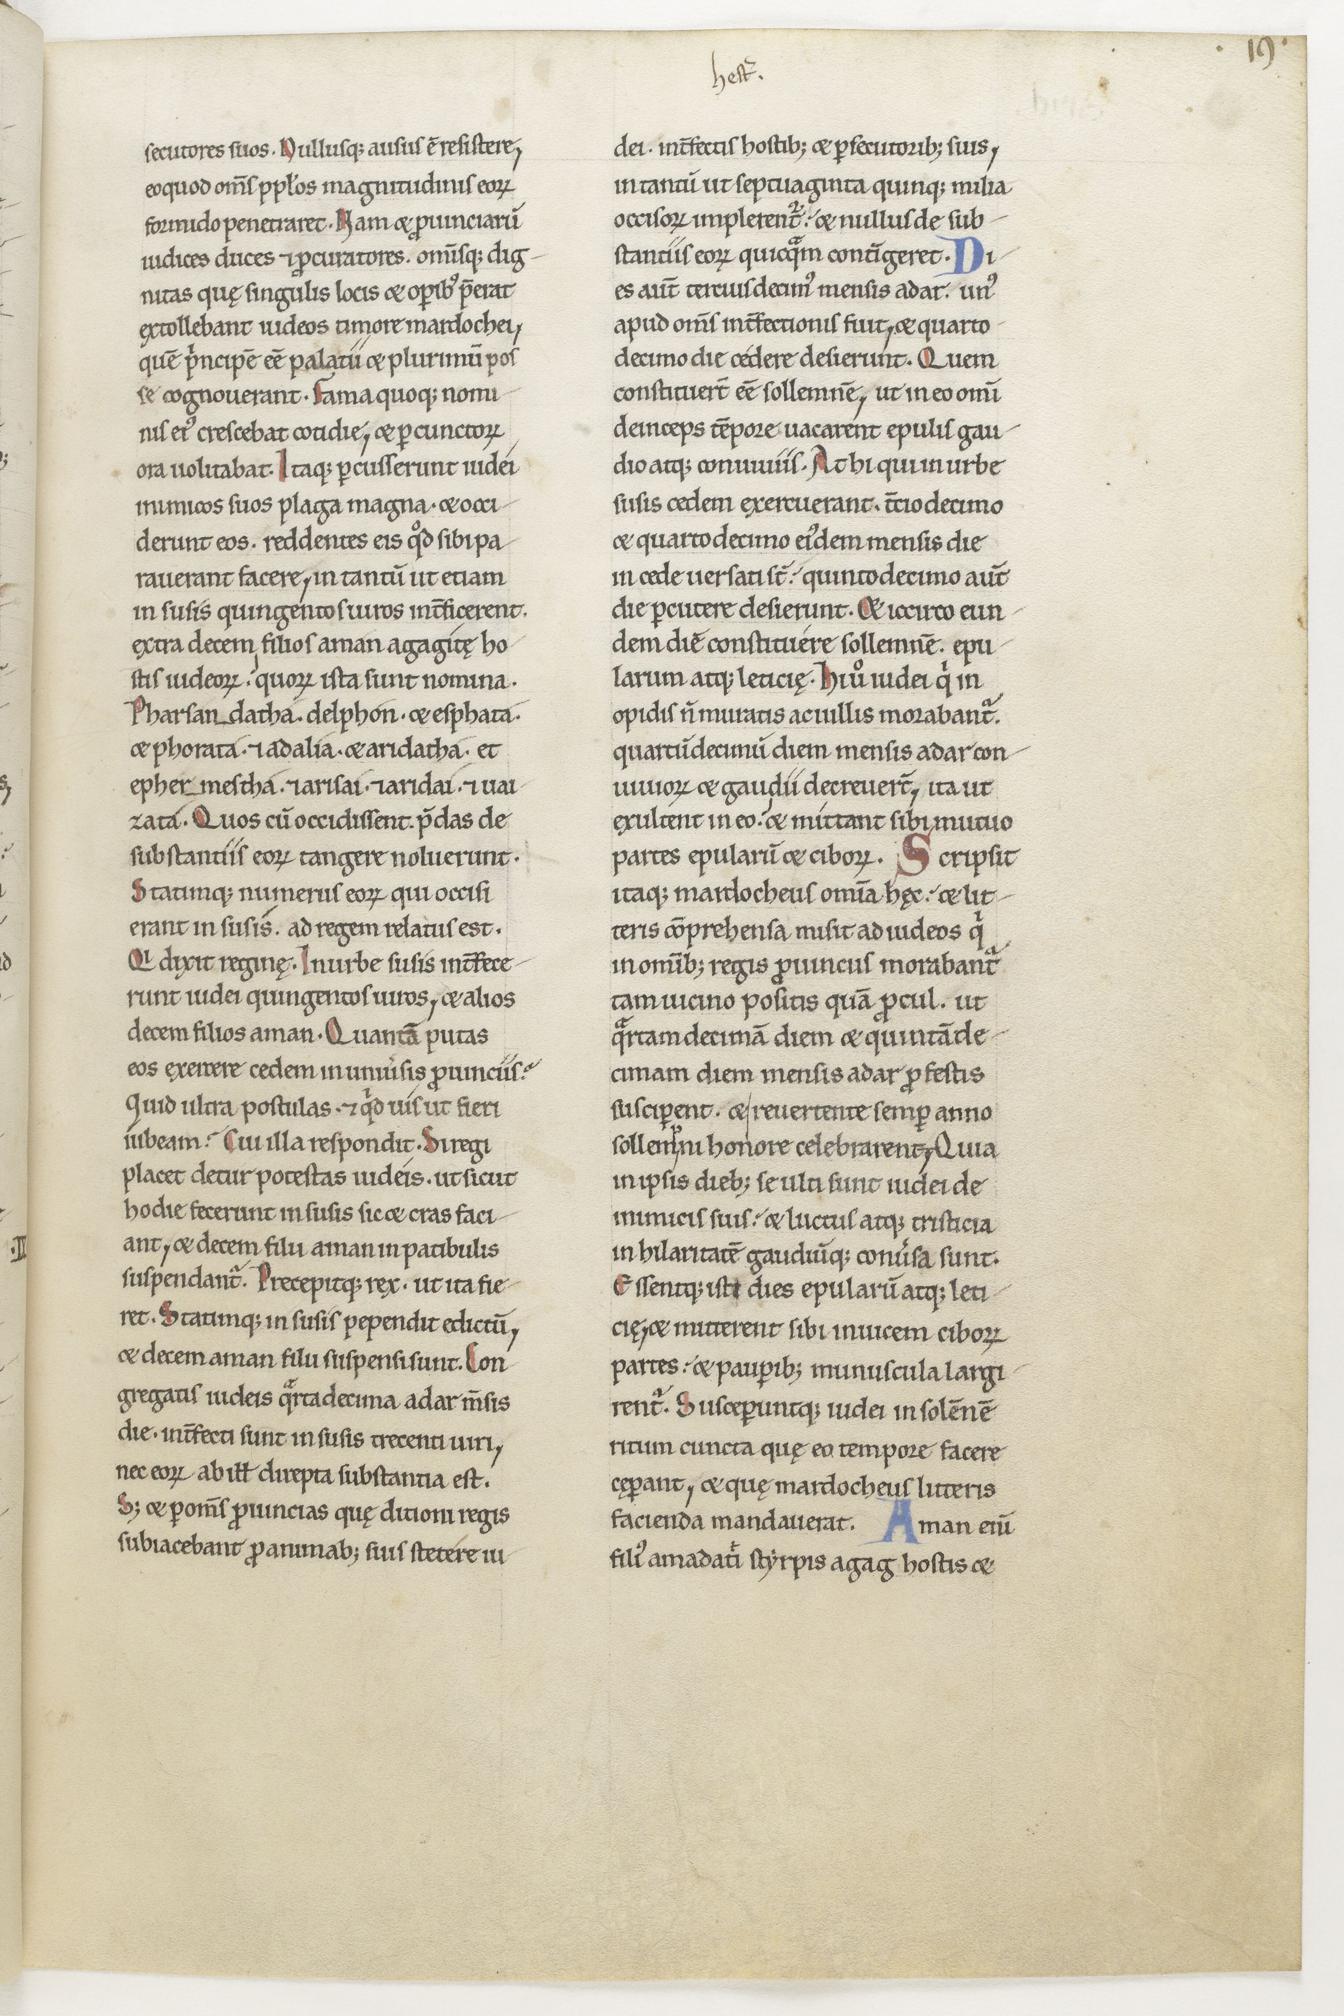 hest̄.
19
secutores suos. Nullusq; ausus ē resistere,
eoquod om̄s pp̄los magnitudinis eoꝝ
formido penetraret. Nam & ꝓuinciarū
iudices duces ⁊ ꝓcuratores. omīsq; dig-
nitas quę singulis locis & opib' p̄erat
extollebant iudeos timore mardochei,
quē p̍ncipē eē palatii & plurimū pos
se cognouerant. Fama quoq; nomi-
nis ei' crescebat cotidie, & ꝑ cunctoꝝ
ora uolitabat. Itaq; ꝑcusserunt iudei
inimicos suos plaga magna. & occi-
derunt eos. reddentes eis qd̊ sibi pa-
rauerant facere, in tantū ut etiam
in susis quingentos uiros int̄ficerent.
extra decem filios aman agagitę ho-
stis iudeoꝝ: quoꝝ ista sunt nomina.
Pharsan_datha. delphon. & esphata.
& phorata. ⁊ adalia. & aridatha. et
epher_mestha. ⁊ arisai. ⁊ aridai. ⁊ uai-
zata. Quos cū occidissent. p̄das de
substantiis eoꝝ tangere noluerunt.
Statimq; numerus eoꝝ qui occisi
erant in susis. ad regem relatus est.
Qi dixit reginę. In urbe susis int̄fece-
runt iudei quingentos uiros, & alios
decem filios aman. Quantā putas
eos exercere cedem in uniu̍sis ꝓuinciis?
Quid ultra postulas. ⁊ qd̍ uis ut fieri
iubeam? Cui illa respondit. Si regi
placet detur potestas iudeis. ut sicut
hodie fecerunt in susis sic & cras faci-
ant, & decem filii aman in patibulis
suspendant᷑. Precepitq; rex. ut ita fie-
ret. Statimq; in susis pependit edictū,
& decem aman filii suspensi sunt. Con
gregatis iudeis qͣrtadecima adar m̄sis
die. int̄fecti sunt in susis trecenti uiri,
nec eoꝝ ab ill̄ direpta substantia est.
S; & ꝑ om̄s ꝓuincias quę ditioni regis
subiacebant ꝓ animab; suis stetere iu-
dei. int̄fectis hostib; & ꝑsecutorib; suis,
in tantū ut septuaginta quinq; milia
occisoꝝ implerent᷑: & nullus de sub-
stantiis eoꝝ quicqͣm contigeret. Di-
es aut̄ tercius decim' mensis adar. un'
apud om̄s int̄fectionis fuit, & quarto
decimo die cedere desierunt. Quem
constituert̄ eē sollemnē, ut in eo omī
deinceps tēpore uacarent epulis gau-
dio atq; conuiuiis. At hi qui in urbe
susis cedem exercuerant. t̄cio decimo
& quarto decimo ei'dem mensis die
in cede uersati st̄: quinto decimo aut̄
die ꝑcutere desierunt. & iccirco eun-
dem diē constituere sollemnē. epu-
larum atq; leticię. Hi uº iudei q̍ in
opidis n̄ muratis ac uillis morabant᷑.
quartū decimū diem mensis adar con-
uiuioꝝ & gaudii decreuert̄, ita ut
exultent in eo: & mittant sibi mutuo
partes epularū & ciboꝝ. Scripsit
itaq; mardocheus omīa hęc: & lit-
teris cōprehensa misit ad iudeos q̍
in omīb; regis ꝓuinciis morabant᷑
tam uicino positis quā ꝓcul. ut
qͣrtam decimā diem & quintā de-
cimam diem mensis adar ꝓ festis
susciꝑent. & reuertente semꝑ anno
sollempni honore celebrarent, Quia
in ipsis dieb; se ulti sunt iudei de
inimicis suis: & luctus atq; tristicia
in hilaritatē gaudiūq; conu̍sa sunt.
Essentq; isti dies epularū atq; leti-
cię, & mitterent sibi inuicem ciboꝝ
partes: & pauꝑib; munuscula largi-
rent᷑. Susceꝑuntq; iudei in solēnē
ritum cuncta quę eo tempore facere
cęꝑant, & quę mardocheus litteris
facienda mandauerat. Aman eni᷑
fili' amadati styrpis agag hostis &